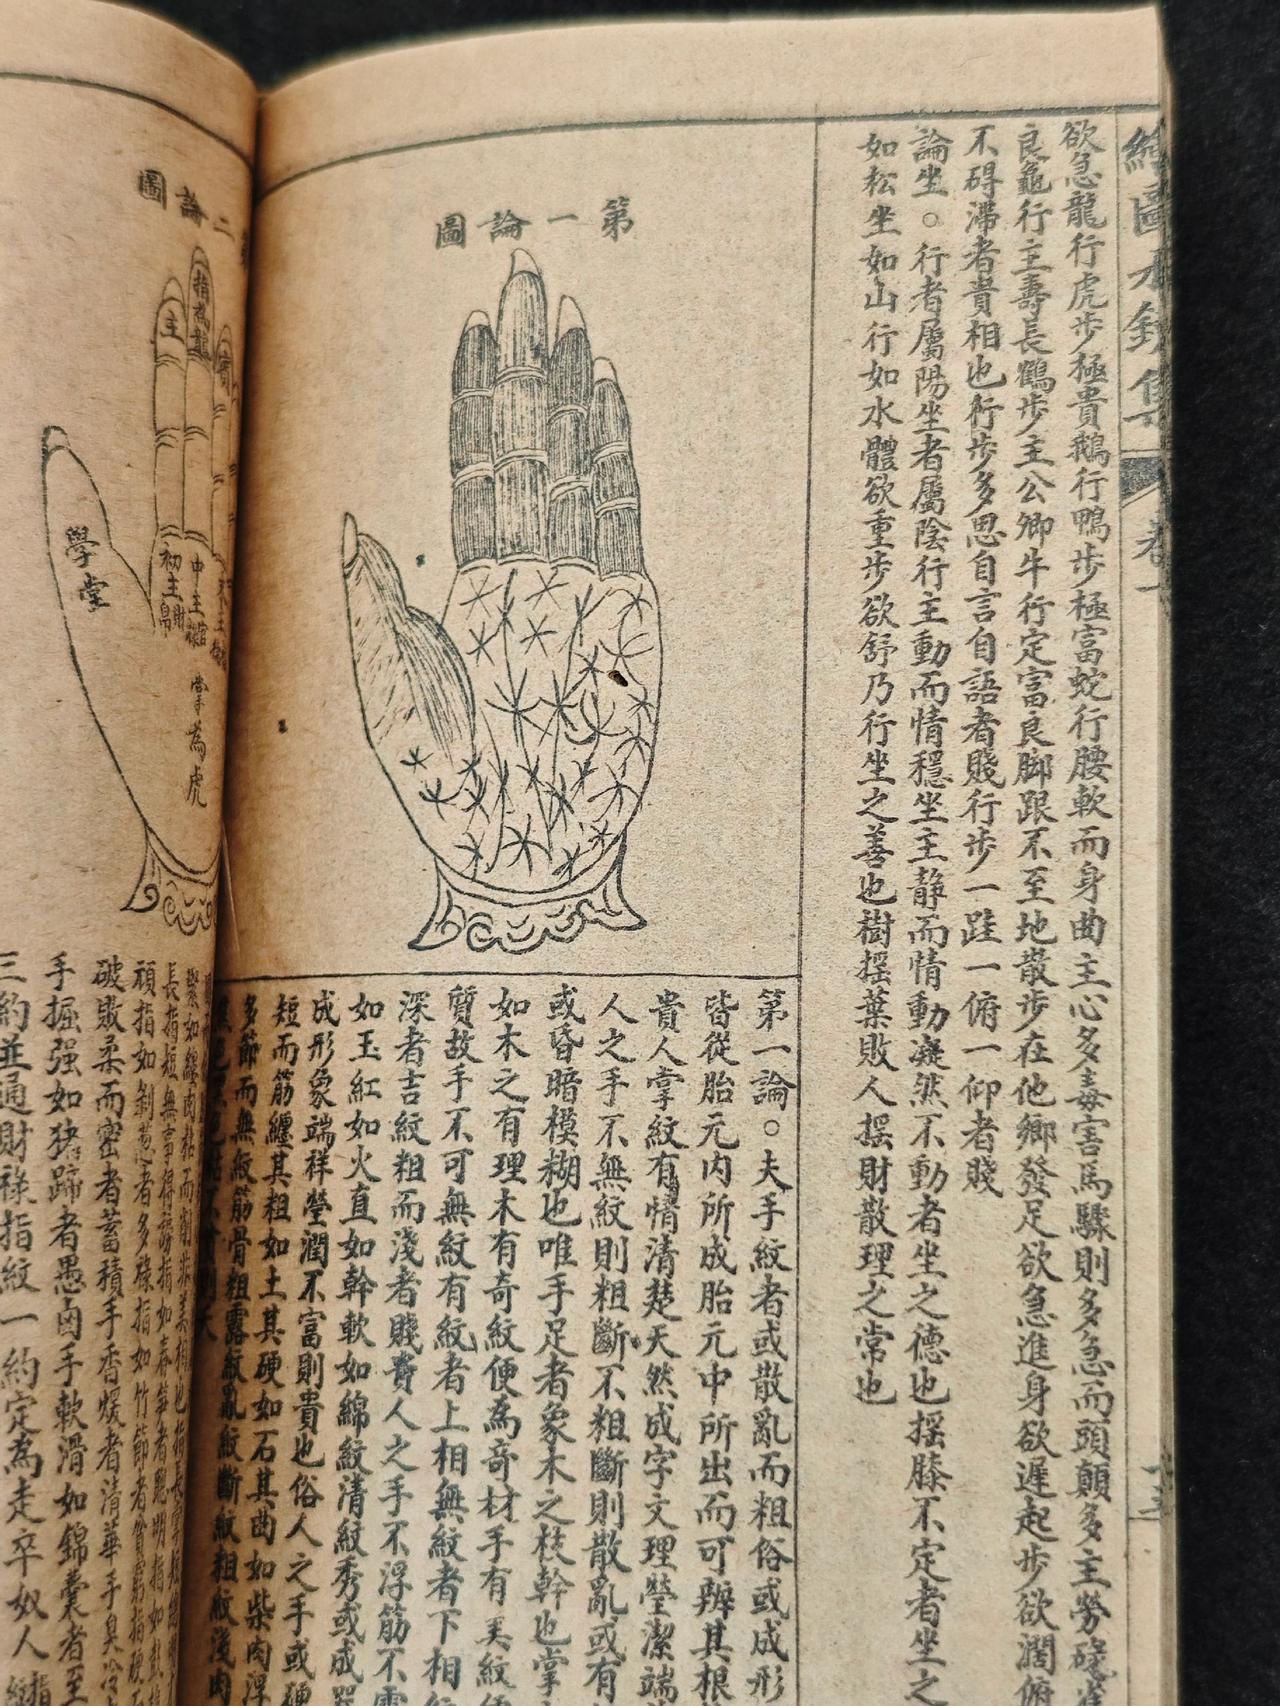 繪圖水鏡集
卷一
欲急龍行虎步極貴鵝行鴨步極富蛇行腰軟而身曲主心多毒害馬驟則多急而頭顛多主勞碌
良龜行主壽長鶴步主公卿牛行定富良脚跟不至地散步在他鄉發足欲急進身欲遲起步欲濶俯
不碍滯者貴相也行步多思自言自語者賤行步一跬一俯一仰者賤
論坐○行者屬陽坐者屬陰行主動而情穩坐主靜而情動凝然不動者坐之德也摇膝不定者坐之
如松坐如山行如水體欲重步欲舒乃行坐之善也樹摇葉敗人摇財散理之常也
第一論圖
第一論○夫手紋者或散亂而粗俗或成形
皆從胎元内所成胎元中所出而可辨其根
貴人掌紋有情清楚天然成字文理瑩潔端
人之手不無紋則粗斷不粗斷則散亂或有
或昏暗模糊也唯手足者象木之枝幹也掌
如木之有理木有奇紋便為奇材手有美紋
質故手不可無紋有紋者上相無紋者下相
深者吉紋粗而淺者賤貴人之手不浮筋不露
如玉紅如火直如幹軟如綿紋清紋秀或成
成形象端祥瑩潤不富則貴也俗人之手或硬
短而筋纏其粗如土其硬如石其曲如柴肉浮
多節而無紋筋骨粗露紋亂紋斷紋粗紋淺肉
二論圖
指為龍
主
賓
學堂
初主財帛
中主官祿
掌為虎
長指短無事得謗指如春筍者聰明指如
頑指如剝葱者多祿指如竹節者貧窮指硬
破敗柔而密者蓄積手香煖者清華手臭冷
手掘强如猪蹄者愚鹵手軟滑如錦囊者至
三約並通財祿指紋一約定為走卒奴人